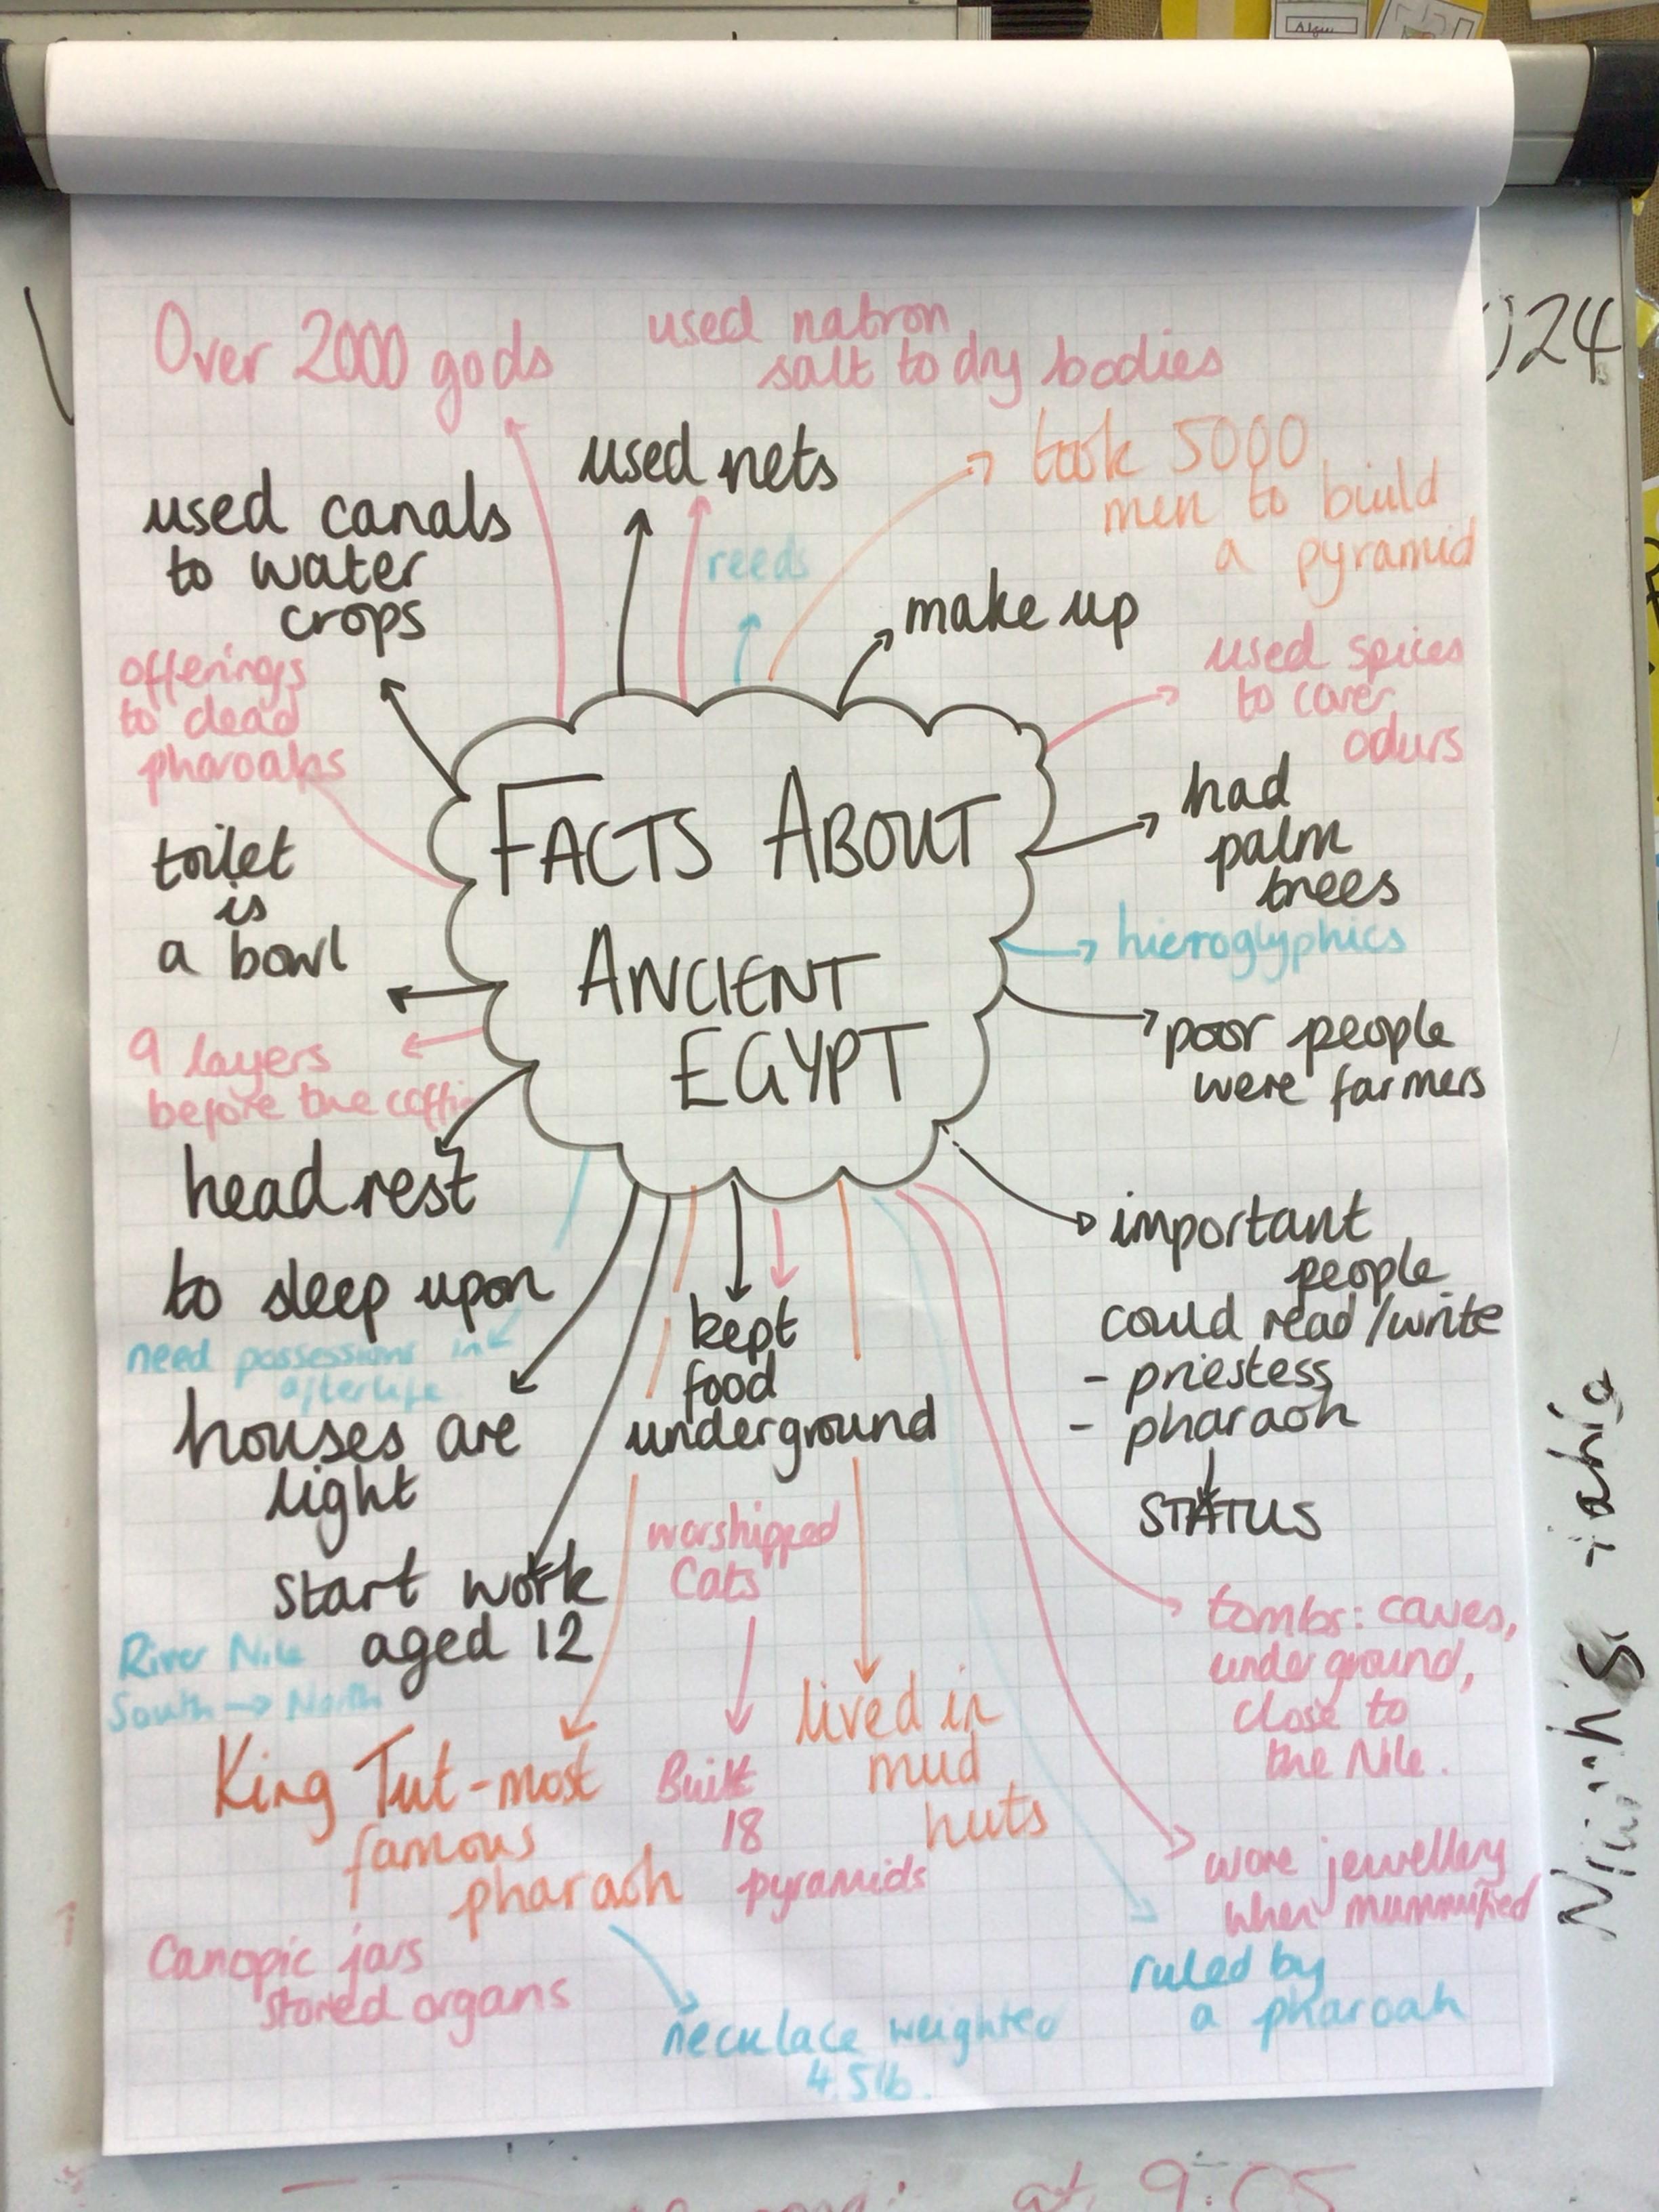 Over 2000 gods
used natron
salt to dry bodies
used nets
took 5000
men to build
a pyramid
used canals
to water
crops
reeds
make up
offerings
to dead
pharoahs
used spices
to cover
odurs
had
palm
trees
toilet
is
a bowl
FACTS ABOUT
ANCIENT
EGYPT
hieroglyphics
9 layers
before the coffin
poor people
were farmers
head rest
to sleep upon
need possessions in
afterlife
important
people
could read/write
- priestess
- pharaoh
STATUS
kept
food
underground
houses are
light
worshipped
Cats
start work
aged 12
River Nile
South → North
tombs: caves,
underground,
close to
the Nile.
King Tut - most
famous
pharaoh
Built
18
pyramids
lived in
mud
huts
wore jewellery
when mummified
Canopic jars
stored organs
ruled by
a pharoah
necklace weighted
4.5lb.
024
at 9:05